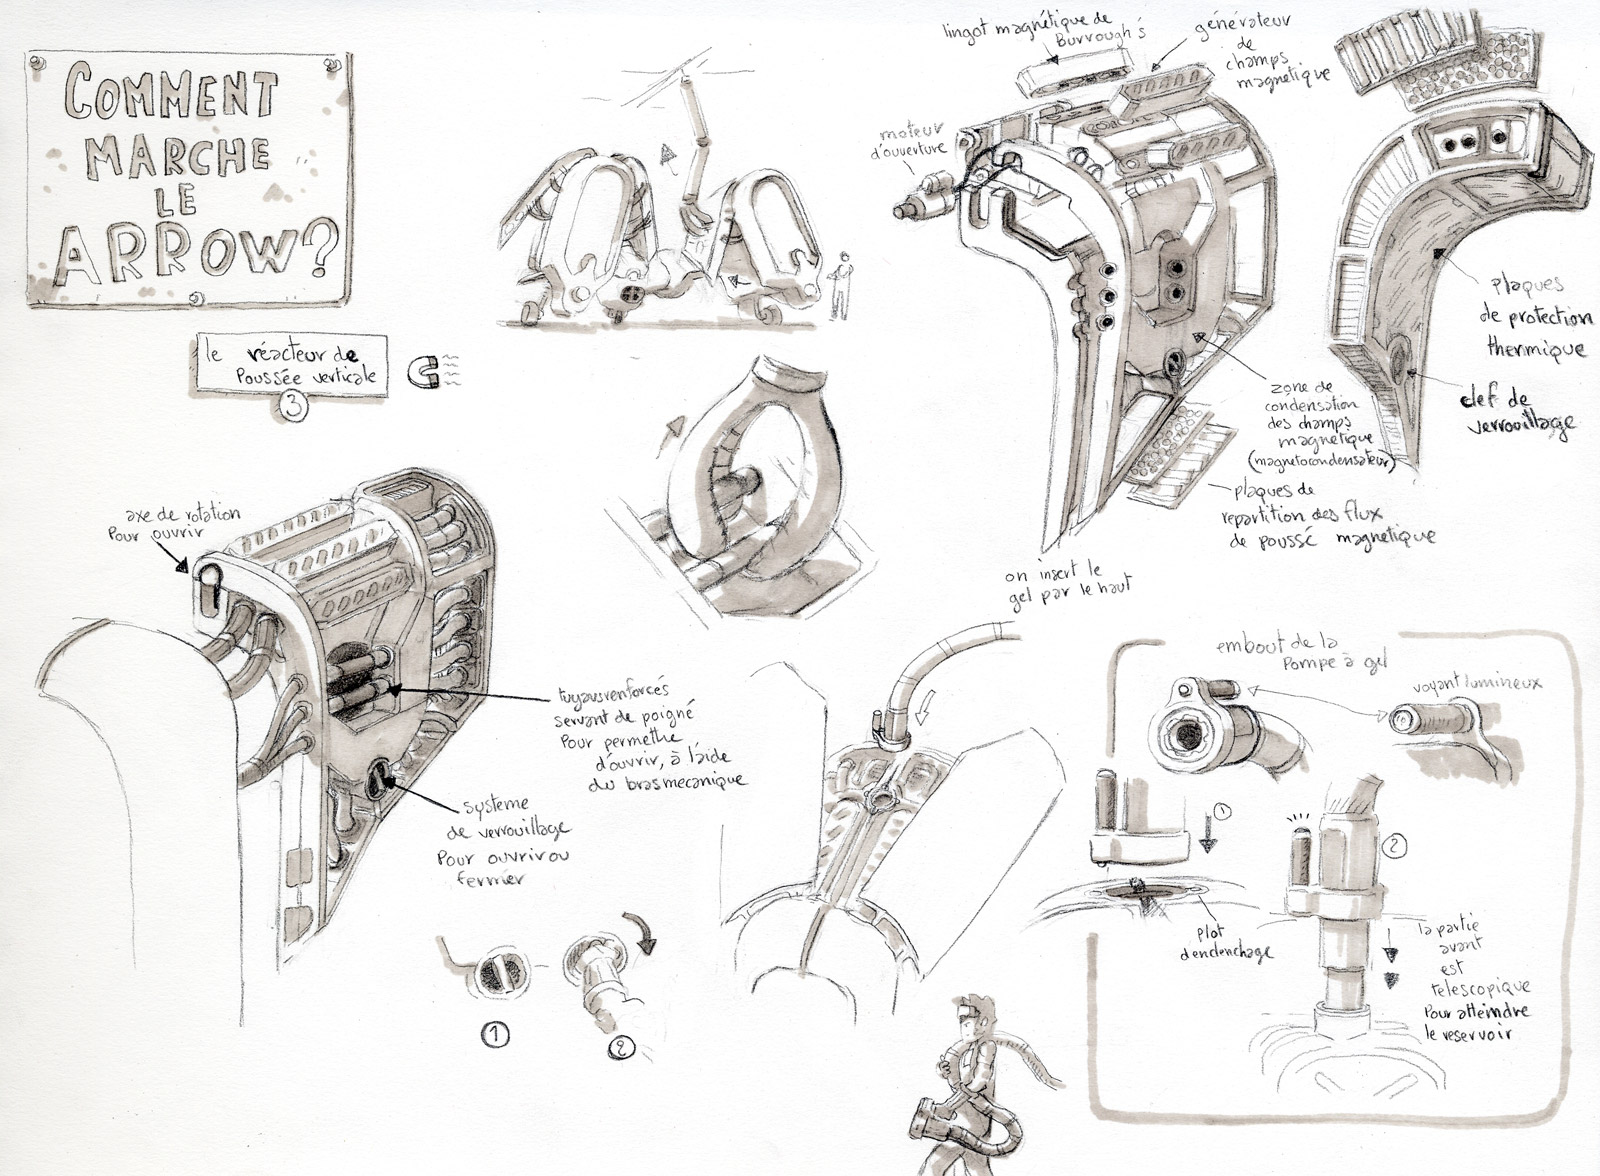 COMMENT
MARCHE
LE
ARROW?
le réacteur de
Poussée verticale
3
lingot magnétique de
Burrough's
générateur
de
champs
magnetique
moteur
d'ouverture
plaques
de protection
thermique
clef de
verrouillage
zone de
condensation
des champs
magnétique
(magnetocondensateur)
plaques de
repartition des flux
de poussé magnétique
axe de rotation
Pour ouvrir
tuyaux renforcés
servant de poigné
Pour permettre
d'ouvrir, à l'aide
du bras mecanique
système
de verrouillage
Pour ouvrir ou
fermer
1
2
on insert le
gel par le haut
embout de la
Pompe à gel
voyant lumineux
1
2
plot
d'enclenchage
la partie
avant
est
telescopique
Pour atteindre
le reservoir